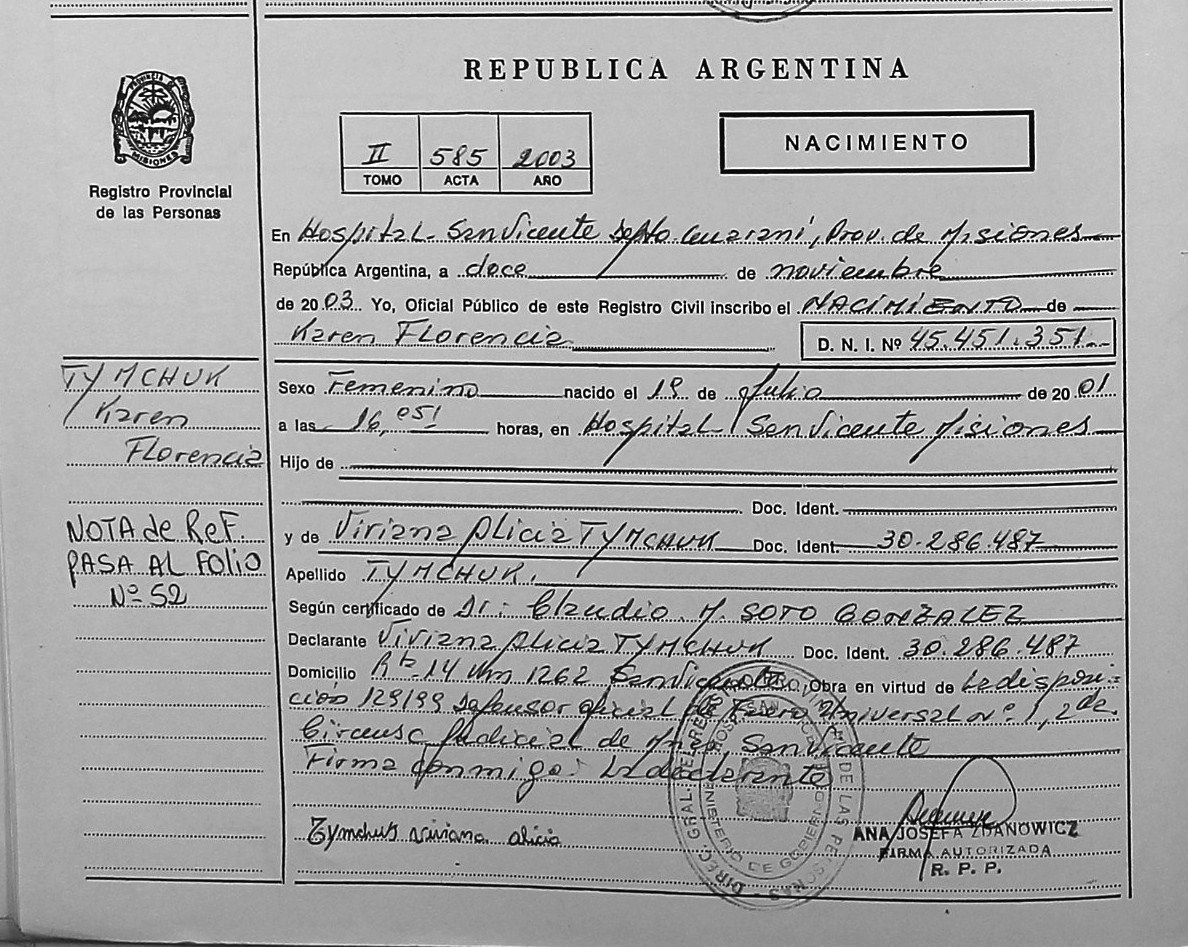 REPUBLICA ARGENTINA
PROVINCIA DE
MISIONES
Registro Provincial
de las Personas
II 585 2003
TOMO ACTA AÑO
NACIMIENTO
En Hospital San Vicente Depto Guarani, Prov. de Misiones
República Argentina, a doce de noviembre
de 2003 Yo, Oficial Público de este Registro Civil inscribo el NACIMIENTO de
Karen Florencia
D. N. I. Nº 45.451.351
TYMCHUK
Karen
Florencia
NOTA de Ref.
PASA AL FOLIO
Nº 52
Sexo Femenino nacido el de Julio de 2001
a las 16,05 horas, en Hospital San Vicente Misiones
Hijo de
Doc. Ident.
y de Viviana Alicia TYMCHUK Doc. Ident. 30.286.487
Apellido TYMCHUK.
Según certificado de Dr: Claudio M. SOTO GONZALEZ
Declarante Viviana Alicia TYMCHUK Doc. Ident. 30.286.487
Domicilio 14 Km 1262 San Vicente Obra en virtud de La disposi-
cion 129/99 Defensor oficial de Fuero Universal nº 1, 2da
Circunsc Judicial de San Vicente
Firma conmigo: La declarante
Tymchuk viviana alicia
ANA JOSEFA ZDANOWICZ
FIRMA AUTORIZADA
R. P. P.
DIREC. GRAL. DE LAS PERSONAS
MINISTERIO DE GOBIERNO